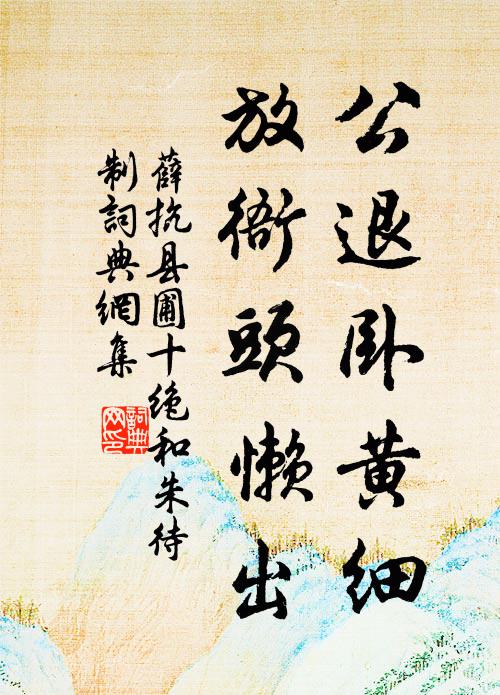 公退卧黄细
放衙頭懒出
薛抗县圃十绝和朱待
制詞典網集
詞典